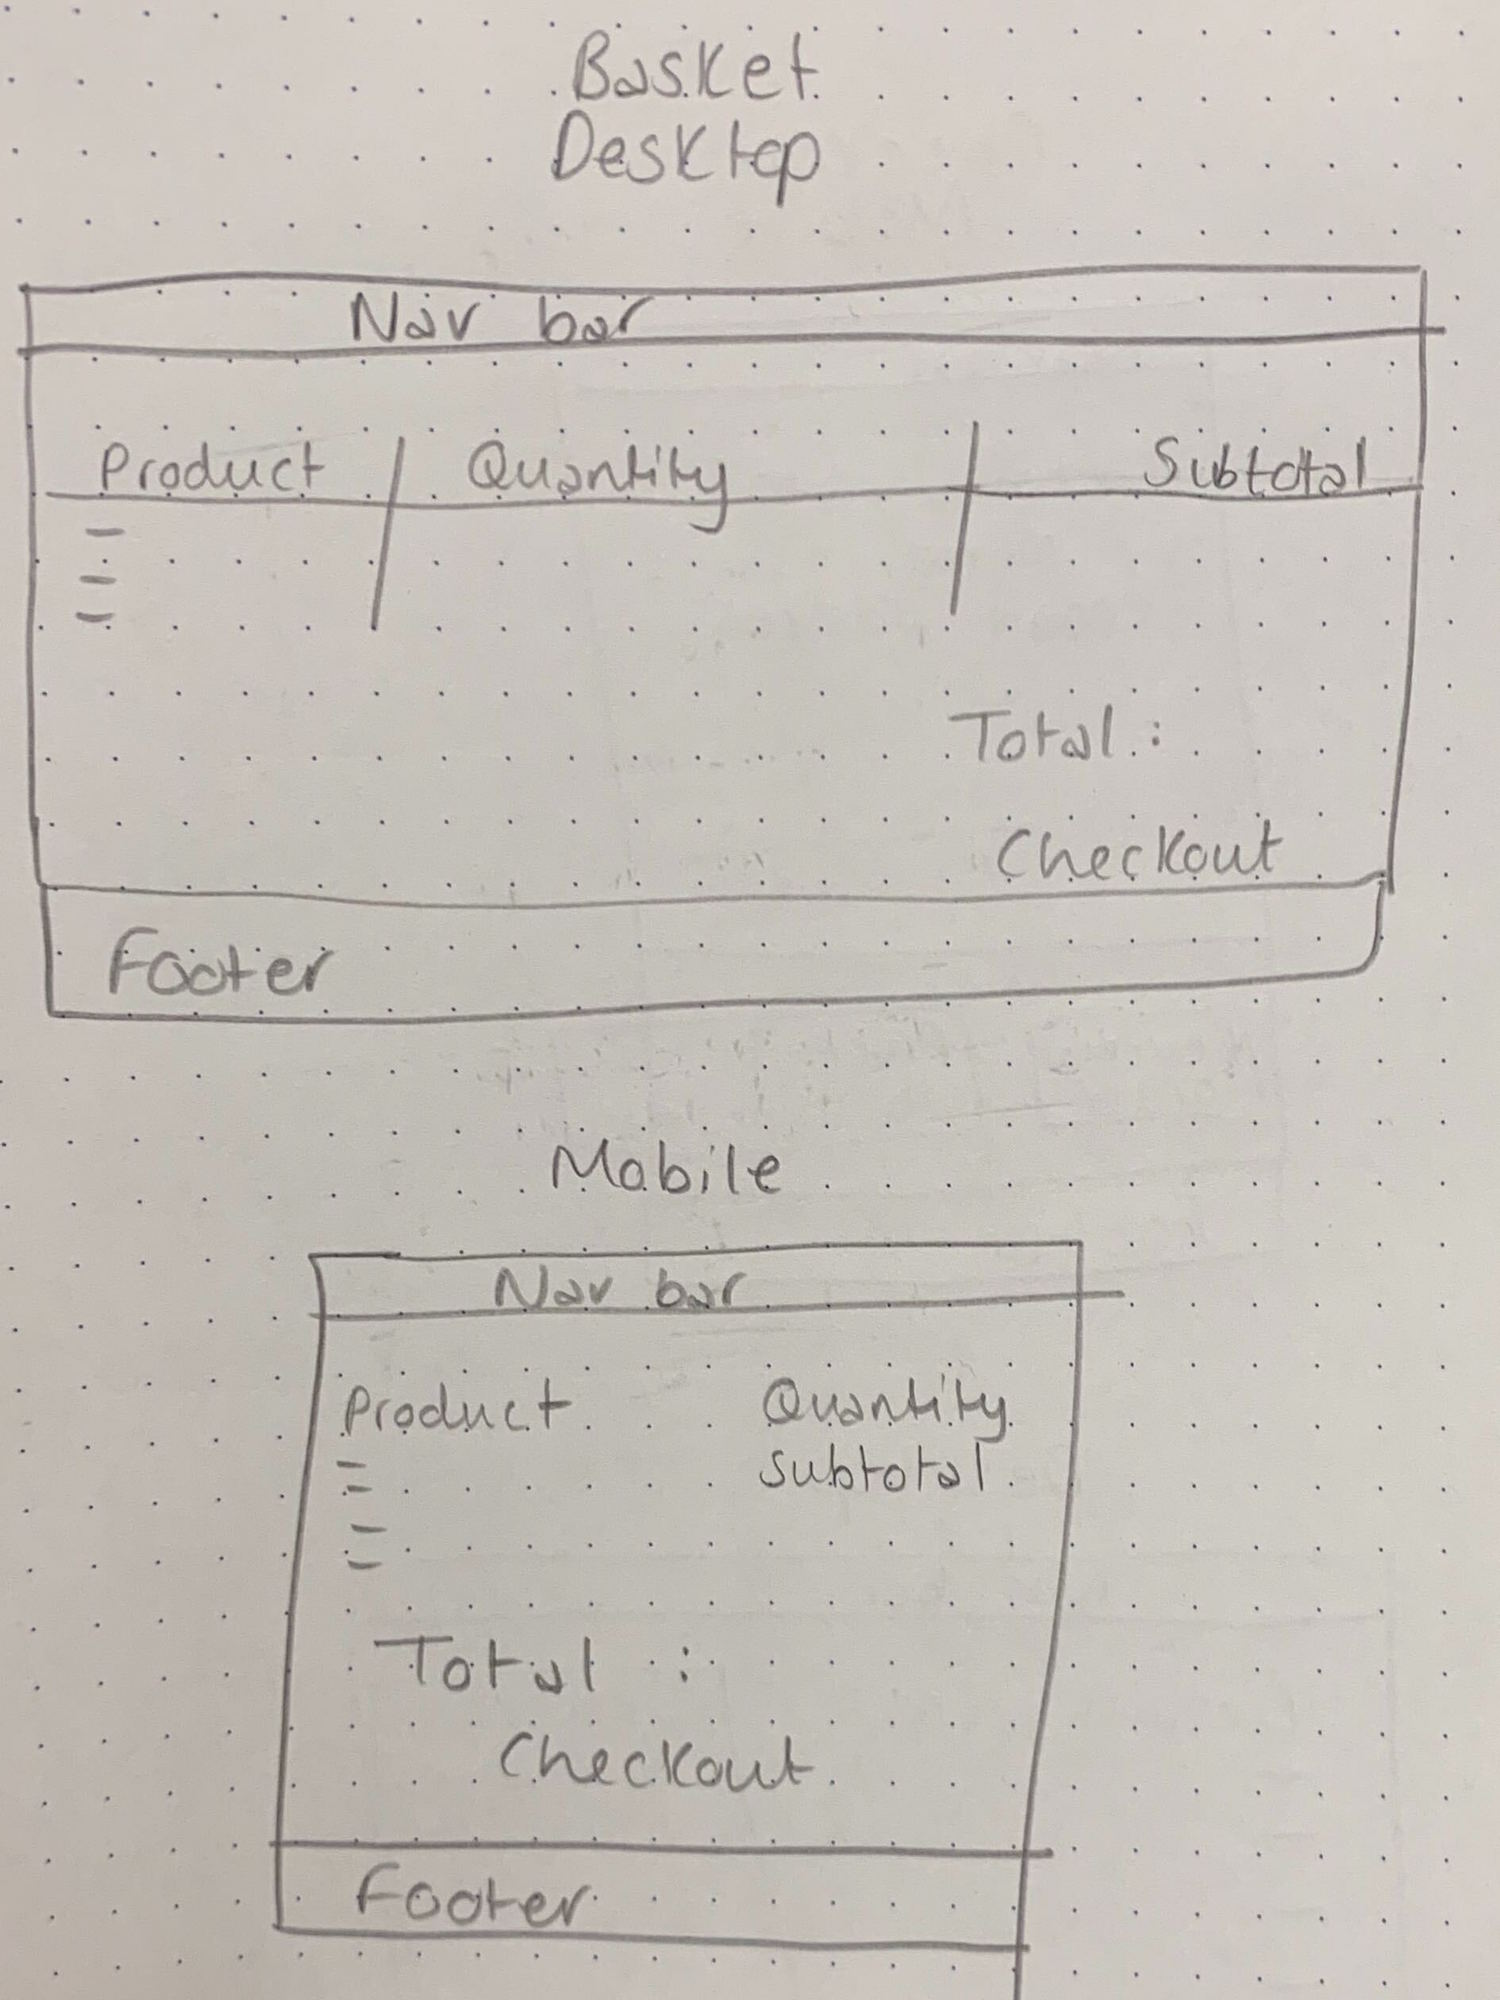 Basket
Desktop
Nav bar
Product Quantity Subtotal
Total :
Checkout
Footer
Mobile
Nav bar
Product Quantity
subtotal
Total :
Checkout
Footer